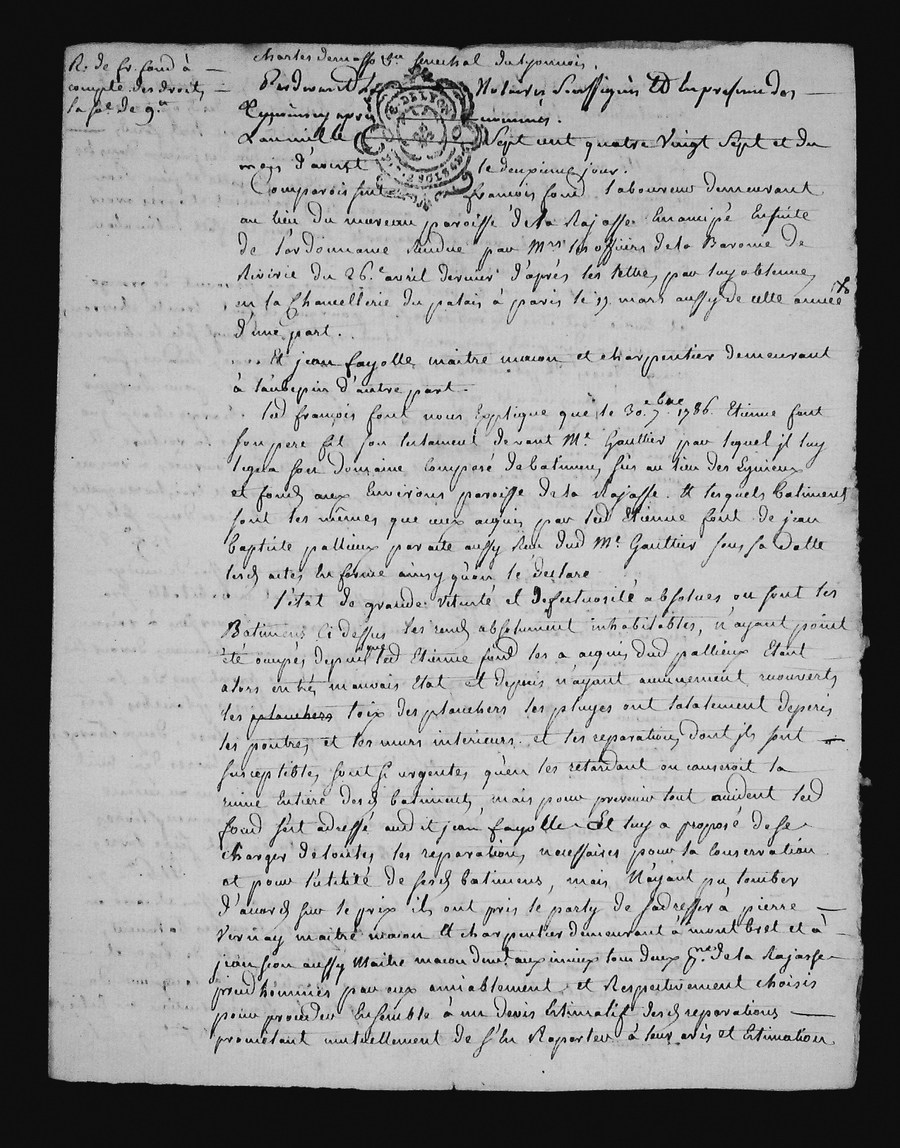 R. de fr. fond à
compte des droits
la so.e de 9.#
Charles de masso sen senechal du lyonnois.
Pardevant le Notaires Soussignés Et En presence des
temoins cy après nommés.
L'an mille Sept cent quatre Vingt Sept et du
mois d'aoust le deuxieme jour.
Comparois sent françois fond laboureur demeurant
au lieu du mureau paroisse de la Rajasse Emancipé Ensuite
de l'ordonnance Rendue par Mrs les officiers de la Baronie de
Riverie du 26.e avril dernier d'après les lettres par luy obtenues
en la Chancellerie du palais à paris le 19. mars aussy de cette année
d'une part.
Et jean fayolle maitre maçon et charpentier demeurant
à laubepin d'autre part.
led françois font nous Explique que le 30.e 7.bre 1786. Etienne font
son pere fit son testament devant Me Gaultier par lequel jl luy
legua son domaine composé de batiments sis au lieu des Eynieux
et fonds aux Environs paroisse de la Rajasse. Et lesquels batiments
sont les mêmes que ceux acquis par led Etienne font de jean
baptiste pallieux par acte aussy Reçu dud Me Gaultier sous sa datte
lesd actes En forme ainsy qu'on le declare
L'état de grande vetusté et defectuosité absolues ou sont les
Batimens Ci dessus les rend absolument inhabitables, n'ayant point
été occupés depuis que led Etienne fond les a acquis dud pallieux Etant
alors en très mauvais Etat et depuis n'ayant aucunement recouverts
les planchers toix des planchers les pluyes ont totalement deperis
les poutres et les murs interieurs. et les reparations dont jls sont
susceptibles sont si urgentes qu'en les retardant on causeroit la
ruine Entiere desd batiments, mais pour prevenir tout accident led
fond s'est adressé audit jean fayolle Et luy a proposé de se
charger de toutes les reparations necessaires pour la Conservation
et pour l'utilité de sesd batimens, mais N'ayant pu tomber
d'accord sur le prix ils ont pris le party de s'adresser à pierre
Vernay maitre maçon Et charpentier demeurant à mont bret et à
jean sion aussy Maitre macon demt. aux lieu deux psse de la Rajasse
prud'hommes par eux amiablement et Respectivement choisis
pour proceder Ensemble à un Devis Estimatif desd reparations
promettant mutuellement de s'En Raporter à leur avis et Estimation